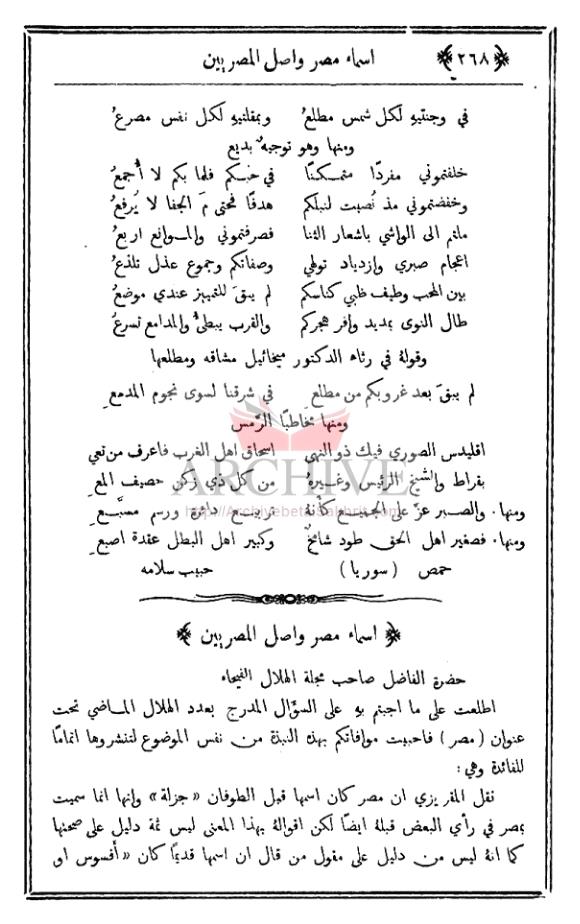 ﴿٢٦٨﴾ اسماء مصر واصل المصريين
في وجنتيهِ لكل شمس مطلعُ وبمقلتيهِ لكل نفس مصرعُ
ومنها وهو توجيهٌ بديع
خلفتموني مفردًا متمكنًا في حبكم فلما بكم لا أُجمعُ
وخفضتموني مذ نُصبت لنبلكم هدفًا فحتى مَ الجفا لا يُرفعُ
ملتم الى الواشي باشعار الثنا فصرفتموني والموانع اربعُ
اعجام صبري وازدياد تولهي وصفاتكم وجموع عذل تلذعُ
بين المحب وطيف ظبي كناسكم لم يبقَ للتمييز عندي موضعُ
طال النوى بمديد وافر هجركم والقرب يبطئُ والمدامع تسرعُ
وقولهُ في رثاء الدكتور ميخائيل مشاقه ومطلعها
لم يبقَ بعد غروبكم من مطلع في شرقنا لسوى نجوم المدمعِ
ومنها مخاطبًا الرَّمس
اقليدس الصوري فيك ذو النهى اسحاق اهل الغرب فاعرف من تعي
بقراط والشيخ الرئيس وغيرهُ من كل ذي زكن حصيف المعِ
ومنها. والصبر عزَّ على الجميع كأنهُ تربيع دائرة ورسم مسبَّعِ
ومنها. فصغير اهل الحق طود شامخٌ وكبير اهل البطل عقدة اصبعِ
حمص (سوريا) حبيب سلامه
ARCHIVE
http://Archivebeta.Sakhrit.com
﴿ اسماء مصر واصل المصريين ﴾
حضرة الفاضل صاحب مجلة الهلال الفيحاء
اطلعت على ما اجبتم بهِ على السؤال المدرج بعدد الهلال الماضي تحت
عنوان (مصر) فاحببت موافاتكم بهذه النبذة من نفس الموضوع لتنشروها اتمامًا
للفائدة وهي:
نقل المقريزي ان مصر كان اسمها قبل الطوفان «جزلة» وانها انما سميت
بمصر في رأي البعض قبلهُ ايضًا لكن اقوالهُ بهذا المعنى ليس ثمة دليل على صحتها
كما انهُ ليس من دليل على مقول من قال ان اسمها قديمًا كان «أفسوس او